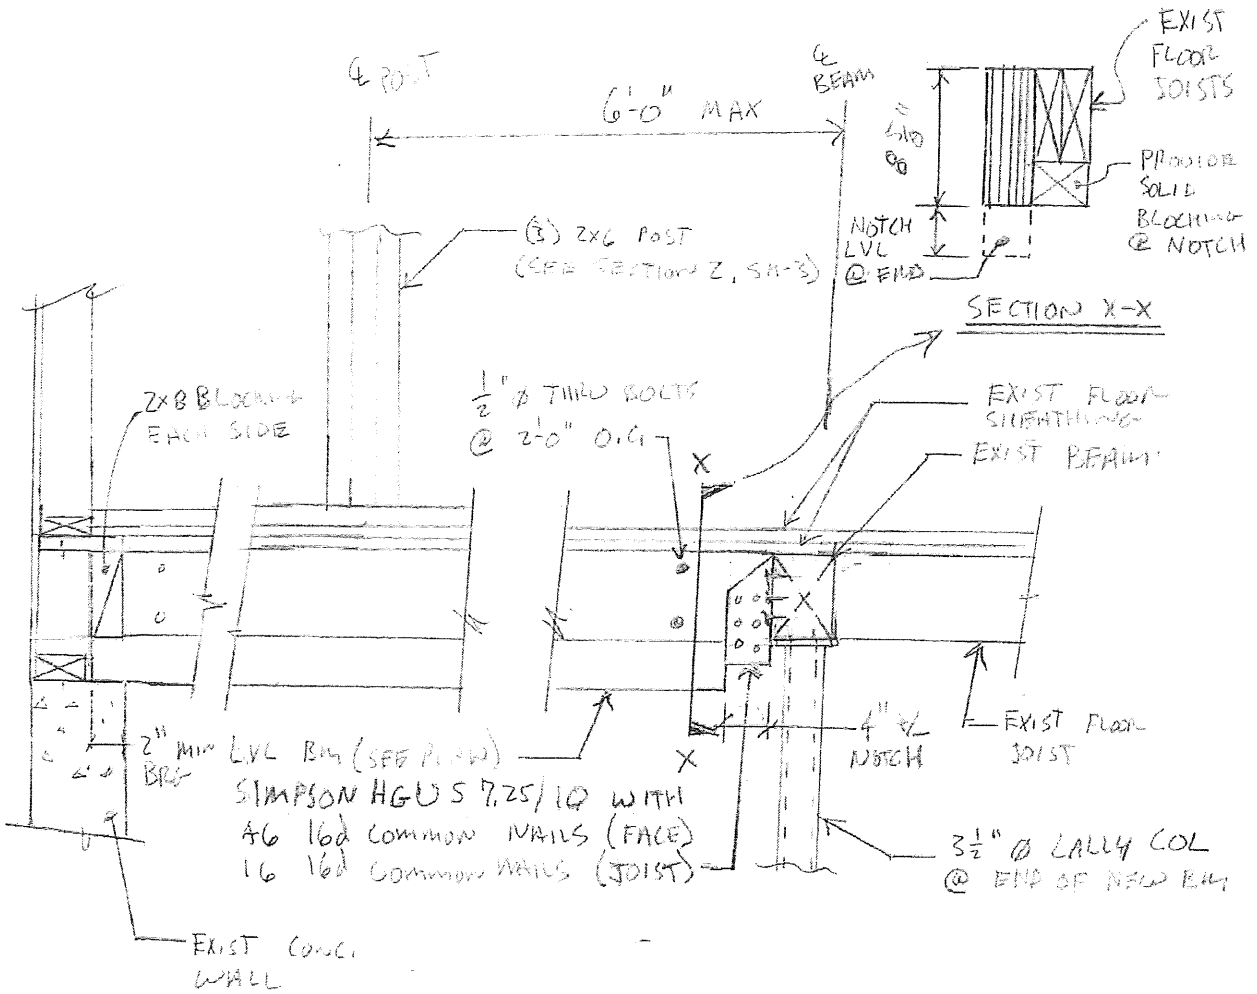 ℄ POST
℄
BEAM
6'-0" MAX
EXIST
FLOOR
JOISTS
PROVIDE
SOLID
BLOCKING
@ NOTCH
NOTCH
LVL
@ END
SECTION X-X
(3) 2x6 POST
(SEE SECTION 2, SK-3)
2x8 BLOCKING
EACH SIDE
1/2" Ø THRU BOLTS
@ 2'-0" O.C.
EXIST FLOOR
SHEATHING
EXIST BEAM
X
X
2" MIN
BRG
LVL BM (SEE PLAN)
SIMPSON HGUS 7.25/10 WITH
46 16d COMMON NAILS (FACE)
16 16d COMMON NAILS (JOIST)
4" +/-
NOTCH
EXIST FLOOR
JOIST
3 1/2" Ø LALLY COL
@ END OF NEW BM
EXIST CONC.
WALL